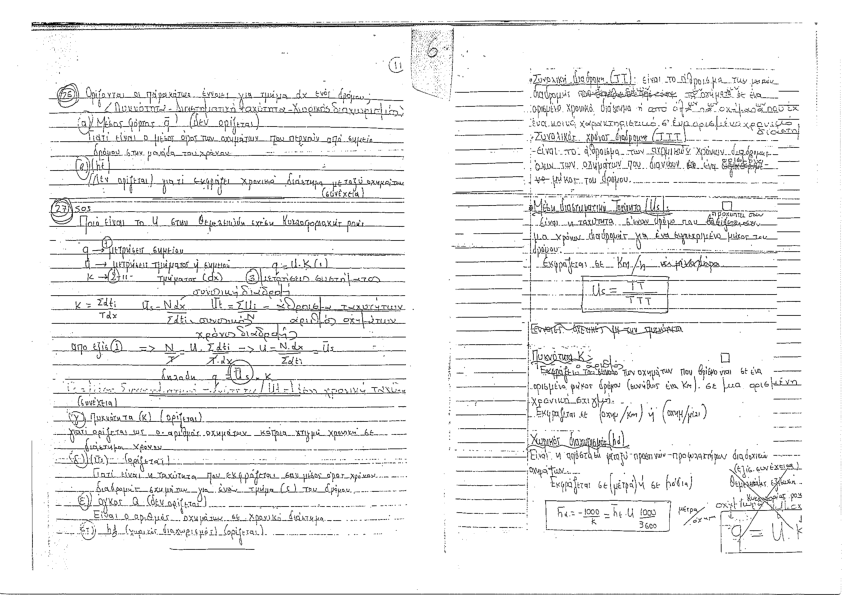 11
6
26 Ορίζονται οι παρακάτω έννοιες για τμήμα dx ενός δρόμου;
(Πυκνότητα - Διαστηματική ταχύτητα - Χωρικός διαχωρισμός)
(α) Μέσος φόρτος q̄ (δεν ορίζεται)
Γιατί είναι ο μέσος όρος των οχημάτων που περνούν από σημείο
δρόμου στην μονάδα του χρόνου
(β) h̄t
(Δεν ορίζεται) γιατί εκφράζει χρονικό διάστημα μεταξύ οχημάτων
(συνέχεια)
27 SOS
Ποιό είναι το U στην θεμελιώδη σχέση Κυκλοφοριακής ροής
q → 1 μετρήσεις σημείου
U → μετρήσεις τμήματος ή σημείου q = U·K (1)
K → 2 -11- τμήματος (dx) 3 μετρήσεις συστήματος
συνολική διαδρομή
K = Σdti / Tdx Ūs = Ndx / Σdti Ūt = ΣUi / N = άθροισμα ταχυτήτων / αριθμός οχημάτων
χρόνος διαδρομής
απο εξίσ (1) => N/T = U · Σdti / T·dx -> U = N·dx / Σdti = Ūs
δηλαδή q = Ū · K
(συνέχεια)
(γ) Πυκνότητα (K) (ορίζεται)
γιατί ορίζεται ως ο αριθμός οχημάτων κάποια στιγμή χρονική σε
διάστημα χρόνου
(δ) (Ūs) (ορίζεται)
Γιατί είναι η ταχύτητα που εκφράζεται σαν μέσος όρος χρόνου
διαδρομής οχημάτων για έναν τμήμα (s) του δρόμου.
(ε) όγκος Q (δεν ορίζεται)
Είναι ο αριθμός οχημάτων σε χρονικό διάστημα.
(στ) hd (χωρικός διαχωρισμός) (ορίζεται)
Συνολική διαδρομή (TT): είναι το άθροισμα των μηκών
διαδρομής οχημάτων σε ένα
ορισμένο χρονικό διάστημα ή από όλα τα οχήματα που έχ
ένα κοινό χαρακτηριστικό σ' ένα ορισμένο χρονικό
διάστη
Συνολικός χρόνος διαδρομής (TTT)
- είναι το άθροισμα των χρόνων διαδρομής
όλων των οχημάτων που διανύουν ένα ορισμένο
μήκος του δρόμου.
Μέση διαστηματική Ταχύτητα (Us):
είναι η ταχύτητα σ'έναν δρόμο που προκύπτει από
μια χρόνων διαδρομής για ένα συγκεκριμένο μήκος του
δρόμου.
Εκφράζεται σε Km/h
Us = TT / TTT
Πυκνότητα K
Εκφράζει τον αριθμό των οχημάτων που βρίσκονται σε ένα
ορισμένο μήκος δρόμου (συνήθως ένα Km). σε μια ορισμένη
χρονική στιγμή.
Εκφράζεται σε (οχημ/km) ή (οχημ/μίλι)
Χωρικός διαχωρισμός (hd).
Είναι η απόσταση μεταξύ προσθίων προφυλακτήρων διαδοχικών
οχημάτων.
Εκφράζεται σε (μέτρα) ή σε (πόδια)
(εξίσ. συνέχειας)
Θεμελιώδης εξίσωση
Κυκλοφορίας ροή
h̄d = 1000 / K = h̄t · U 1000 / 3600 μέτρα/οχημ
q = U · K